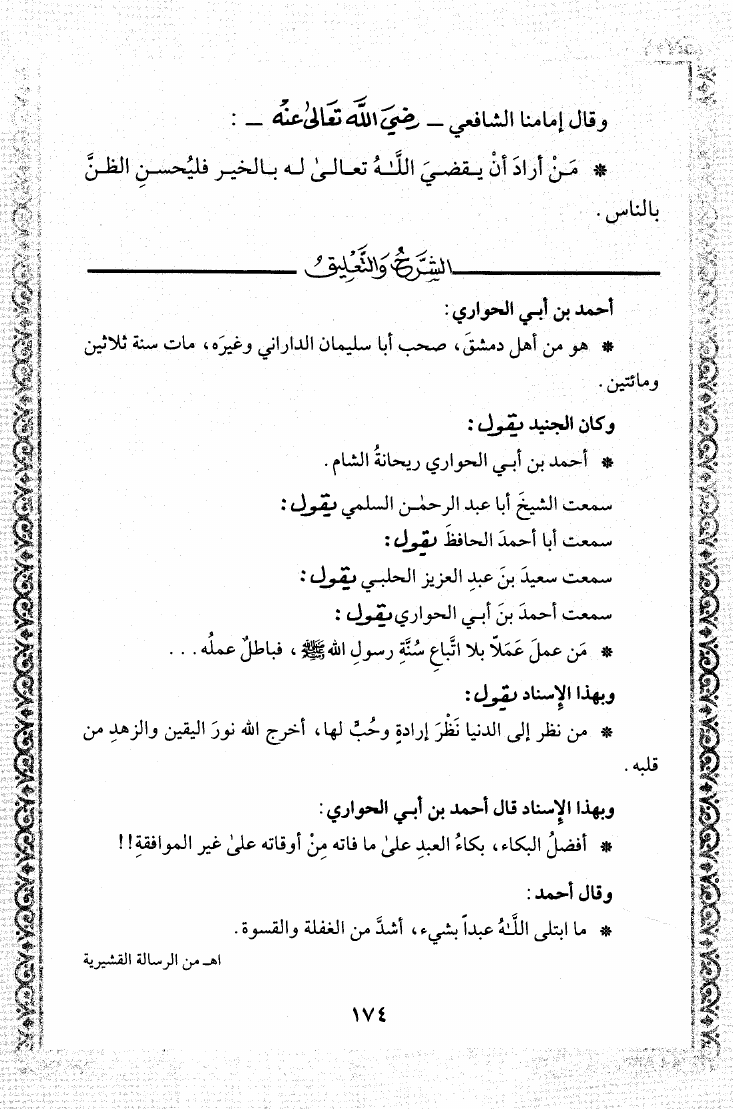 وقال إمامنا الشافعي – رضيَ اللَّه تعَالىٰ عنْه – :
* مَـنْ أرادَ أنْ يـقضـيَ اللَّـهُ تعـالـىٰ لـه بـالخيـر فليُحسـنِ الظـنَّ
بالناس .
الشَّرْحُ وَالتَّعْلِيق
أحمد بن أبـي الحواري :
* هو من أهل دمشقَ، صحب أبا سليمان الداراني وغيرَه، مات سنة ثلاثين
ومائتين .
وكان الجنيد يقول :
* أحمد بن أبـي الحواري ريحانةُ الشام .
سمعت الشيخَ أبا عبد الرحمٰـن السلمي يقول :
سمعت أبا أحمدَ الحافظَ يقول :
سمعت سعيدَ بنَ عبدِ العزيز الحلبـي يقول :
سمعت أحمدَ بنَ أبـي الحواري يقول :
* مَن عملَ عَمَلاً بلا اتَّباعِ سُنَّةِ رسولِ الله ﷺ ، فباطلٌ عملُه . . .
وبهذا الإسناد يقول :
* من نظر إلى الدنيا نَظْرَ إرادةٍ وحُبٍّ لها، أخرج الله نورَ اليقين والزهدِ من
قلبه .
وبهذا الإسناد قال أحمد بن أبـي الحواري :
* أفضلُ البكاء، بكاءُ العبدِ علىٰ ما فاته مِنْ أوقاته علىٰ غير الموافقةِ!!
وقال أحمد :
* ما ابتلى اللَّـهُ عبداً بشيء، أشدَّ من الغفلة والقسوة .
اهـ من الرسالة القشيرية
١٧٤